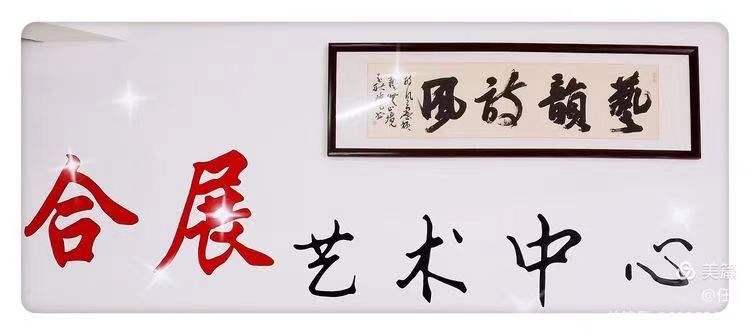 藝韻詩風
合展艺术中心
美篇
@任